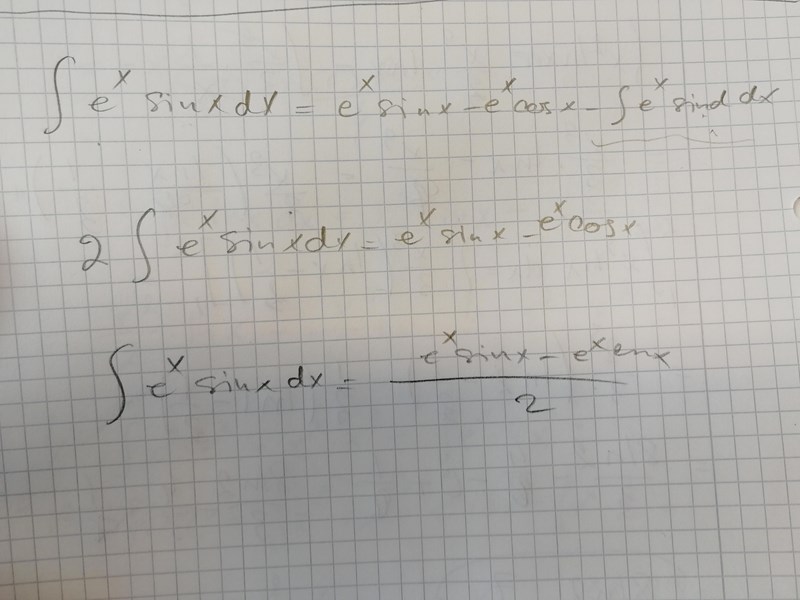 ∫ eˣ sinx dx = eˣ sinx - eˣ cosx - ∫ eˣ sind dx
2 ∫ eˣ sinx dx = eˣ sinx - eˣ cosx
∫ eˣ sinx dx = (eˣ sinx - eˣ cosx) / 2